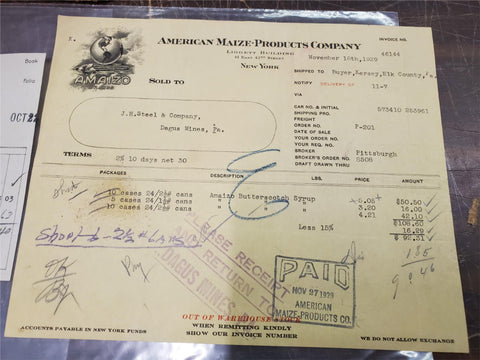 AMERICAN MAIZE-PRODUCTS COMPANY
LIGGETT BUILDING
41 EAST 42ND STREET
NEW YORK
INVOICE NO. 46144
November 16th, 1929
AMAIZO
SOLD TO
J.H. Steel & Company,
Dagus Mines, Pa.
SHIPPED TO Buyer, Kersey, Elk County, Pa.
NOTIFY DELIVERY OF 11-7
VIA
CAR NO. & INITIAL 573410 253961
SHIPPING PRO.
FREIGHT
ORDER NO. P-201
DATE OF SALE
YOUR ORDER NO.
YOUR REQ. NO.
BROKER Pittsburgh
BROKER'S ORDER NO. 5508
DRAFT DRAWN THRU
TERMS 2% 10 days net 30
PACKAGES DESCRIPTION LBS. PRICE AMOUNT
10 cases 24/2½ cans Amaizo Butterscotch Syrup 5.05 $50.50
5 cases 24/ cans " " " 3.20 16.00
10 cases 24/ cans " " " 4.21 42.10
$108.60
Less 15% 16.29
$ 92.31
Short
185
9046
PLEASE RECEIPT
AND RETURN TO
DAGUS MINES
PAID
NOV 27 1929
AMERICAN
MAIZE-PRODUCTS CO.
OUT OF WAREHOUSE STOCK
WHEN REMITTING KINDLY
SHOW OUR INVOICE NUMBER
ACCOUNTS PAYABLE IN NEW YORK FUNDS
WE DO NOT ALLOW EXCHANGE
Book
folio
OCT 22